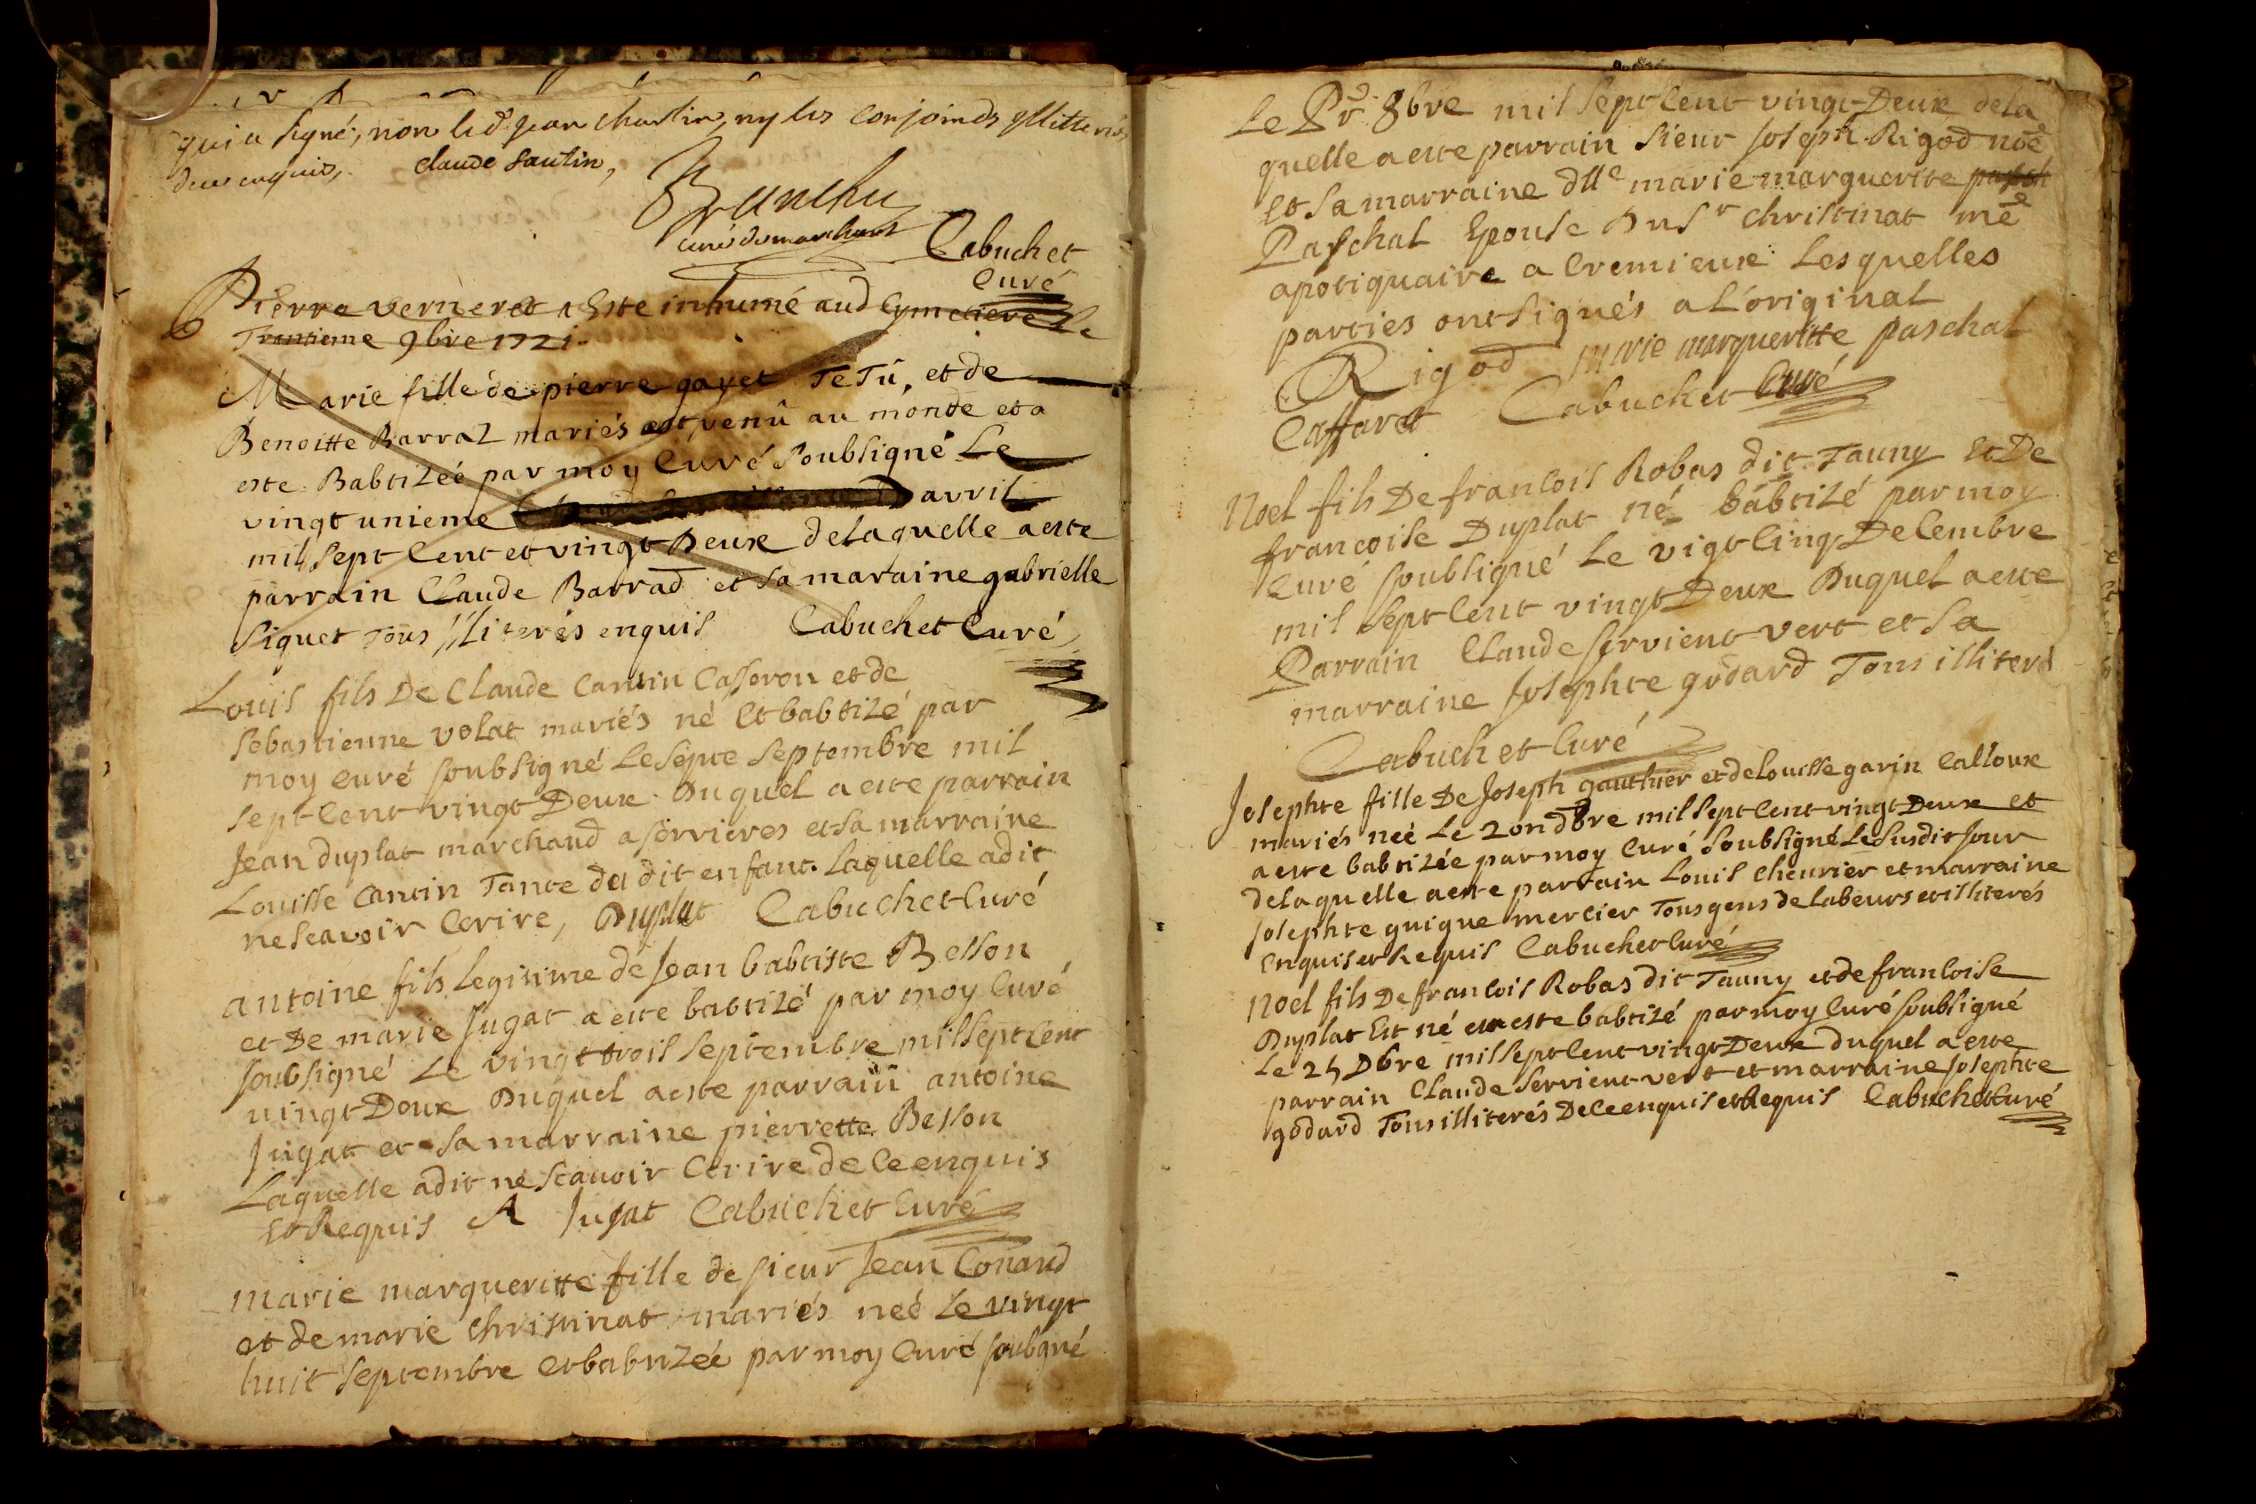 qui a signé, non led Jean Chartin, ny les conjoinds illitterés
de ce enquis, claude Sautin,
curé de marchant
Cabuchet
Curé
Pierre verneret a Este inhumé aud Cymetiere Le
Trentieme 9bre 1721
Marie fille de pierre gayet TeTu, et de
Benoitte Barral mariés est venû au monde et a
este Babtizeé par moy Curé Soubsigné Le
vingt unieme avril
mil Sept Cent et vingt Deux de laquelle a este
parrain Claude Barrad et sa maraine gabrielle
Siguet Tous illiterés enquis Cabuchet Curé
Louis fils De Claude Cantin Casoron et de
Sebastienne volat mariés né Et babtizé par
moy curé soubsigné Le Sept Septembre mil
sept Cent vingt Deux Duquel a este parrain
Jean duplat marchand a serrieres et sa marraine
Louisse Cantin Tante du dit enfant Laquelle a dit
ne scavoir Ecrire, Duplat Cabuchet Curé
antoine fils legitime de Jean babtiste Besson
et De marie Jugat a este babtizé par moy Curé
soubsigné Le vingt trois septembre mil sept Cent
vingt Deux Duquel a este parrain antoine
Jugat et sa marraine pierrette Besson
Laquelle a dit ne Scavoir Ecrire de Ce enquis
Et Requis A Jugat Cabuchet Curé
Marie margueritte fille de sieur Jean Conand
et de marie Christinat mariés neé Le vingt
huit septembre et babtizée par moy Curé soubgné
Le Pr 8bre mil sept Cent vingt Deux de la
quelle a este parrain Sieur Joseph Rigod noe
et sa marraine dlle marie marguerite
Paschal Epouse Du Sr Christinat me
apotiquaire a Cremieux Lesquelles
parties ont signés a L'original
Rigod marie margueritte paschal
Caffaret Cabuchet Curé
Noel fils De francois Robas dit Tauny Et De
francoise Duplat né babtizé par moy
Curé soubsigné Le vigt Cinq DeCembre
mil sept Cent vingt Deux Duquel a este
Parrain Claude servient vert et sa
marraine Josephte godard Tous illiterés
Cabuchet Curé
Josephte fille De Joseph gauthier et de Louisse garin Calloux
mariés neé Le 2on dbre mil sept Cent vingt Deux et
a este babtizée par moy Curé Soubsigné Le Susdit Jour
de laquelle a este parrain Louis Cheurier et marraine
Josephte guigue mercier Tous gens de labeurs et illiterés
Enquis et Requis Cabuchet Curé
Noel fils De francois Robas dit Tauny et de francoise
Duplat Est né et a este babtizé par moy Curé soubsigné
Le 25 Dbre mil sept Cent vingt Deux duquel a este
parrain Claude servient vert et marraine Josephte
godard Tous illiterés De Ce enquis et Requis Cabuchet Curé